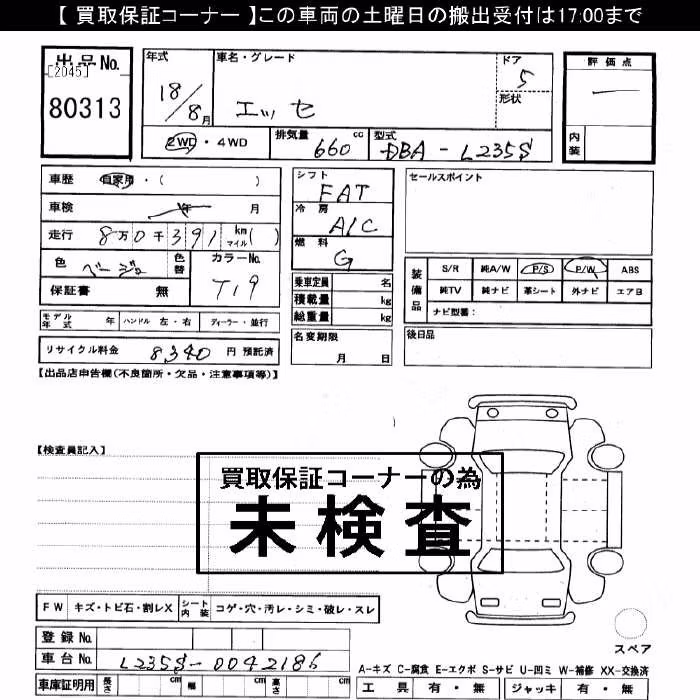 【 買取保証コーナー 】この車両の土曜日の搬出受付は17:00まで
出品No.
[2045]
80313
年式
18/8月
車名・グレード
エッセ
ドア
5
形状
2WD・4WD
排気量 660 cc
型式 DBA - L235S
評価点
内装
車歴 自家用・( )
車検 年 月
走行 8万0千391 km マイル( )
色 ベージュ
色替
カラーNo.
T19
保証書 無
シフト
FAT
冷房
A/C
燃料
G
乗車定員 名
積載量 kg
総重量 kg
セールスポイント
装備品
S/R 純A/W P/S P/W ABS
純TV 純ナビ 革シート 外ナビ エアB
ナビ型番:
モデル年式 年 ハンドル 左・右 ディーラー・並行
リサイクル料金 8340 円 預託済
名変期限
月 日
後日品
【出品店申告欄(不良箇所・欠品・注意事項等)】
【検査員記入】
買取保証コーナーの為
未検査
FW キズ・トビ石・割レX
シート内装 コゲ・穴・汚レ・シミ・破レ・スレ
登録No.
車台No. L235S-0042186
車庫証明用 長さ cm 幅 cm 高さ cm
スペア
A-キズ C-腐食 E-エクボ S-サビ U-凹ミ W-補修 XX-交換済
工具 有・無 ジャッキ 有・無